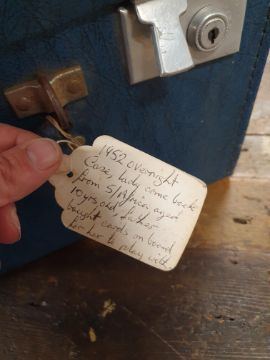 1952 overnight
Case, lady came back
from S/Africa aged
10 yrs old, father
bought cards on board
for her to play with